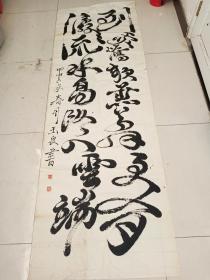 到處鶯歌燕舞更有
潺潺流水高路入雲端
甲申